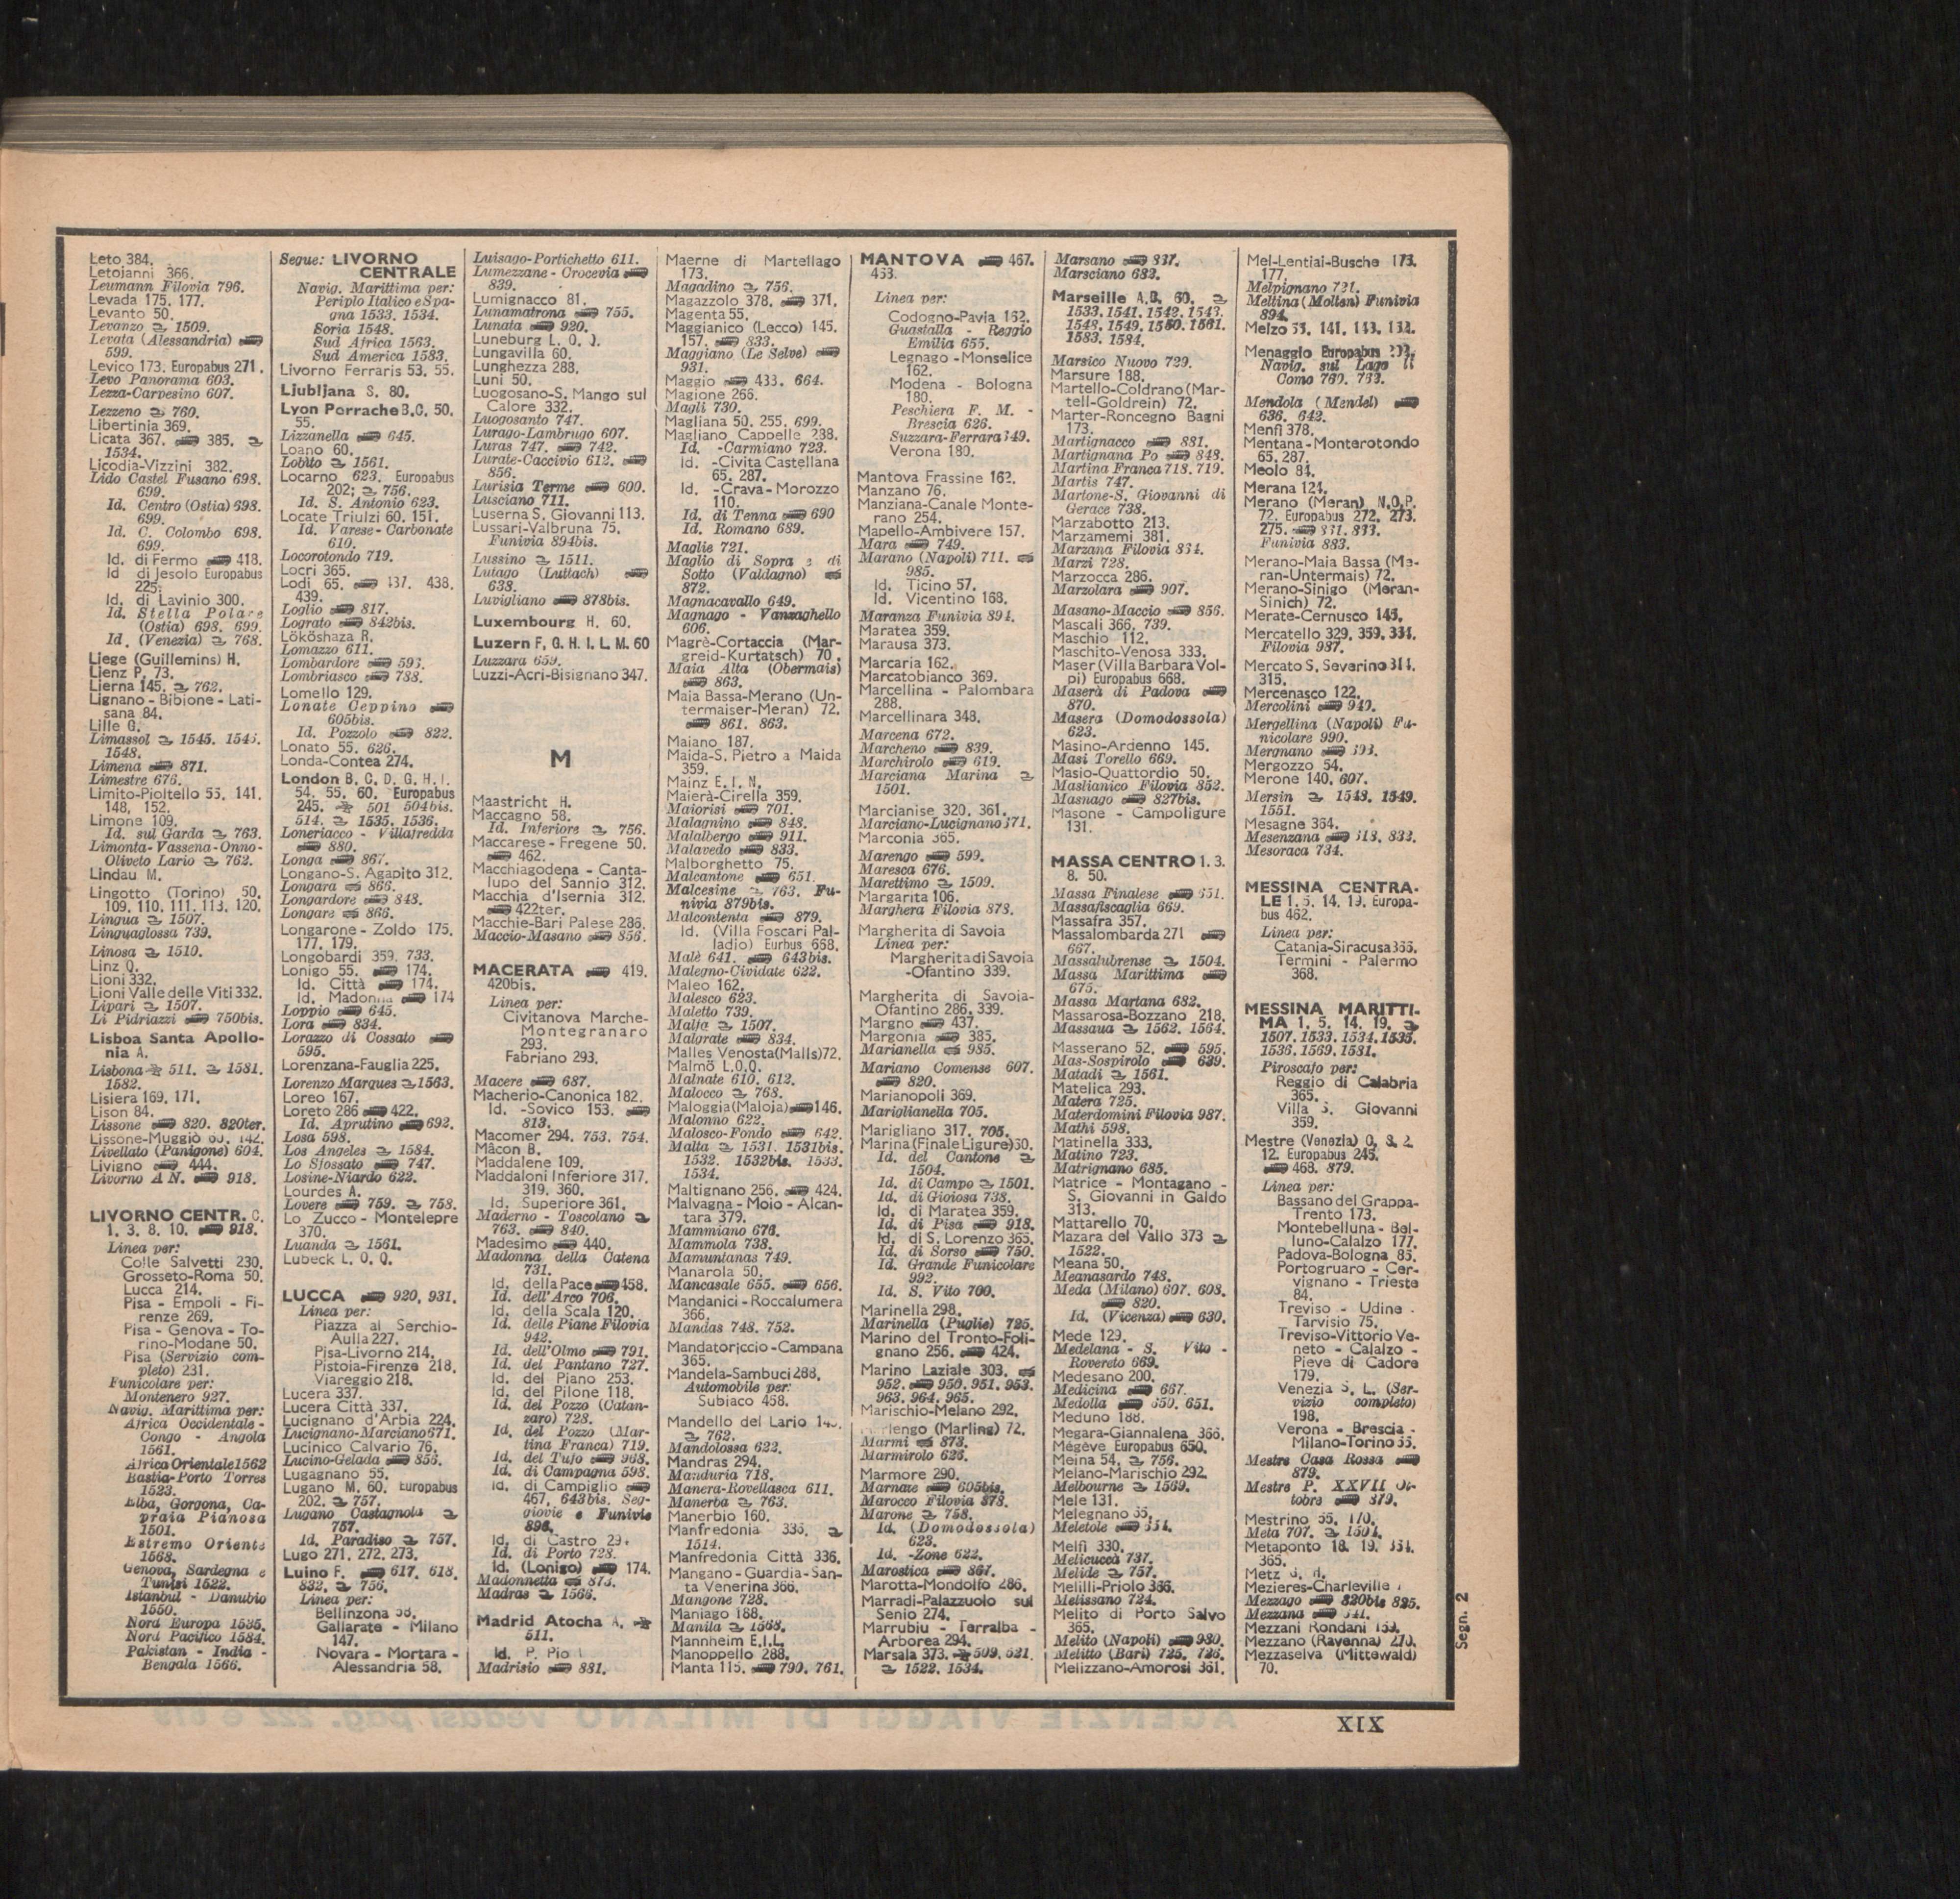 Leto 384.
Letojanni 366.
Leumann Filovia 796.
Levada 175, 177.
Levanto 50.
Levanzo 1509.
Levata (Alessandria)
599.
Levico 173. Europabus 271.
Levo Panorama 603.
Lezza-Carpesino 607.
Lezzeno 760.
Libertinia 369.
Licata 367. 385.
1534.
Licodia-Vizzini 382.
Lido Castel Fusano 698.
699.
Id. Centro (Ostia) 698.
699.
Id. C. Colombo 698.
699.
Id. di Fermo 418.
Id di Jesolo Europabus
225.
Id. di Lavinio 300.
Id. Stella Polare
(Ostia) 698, 699.
Id. (Venezia) 768.
Liege (Guillemins) H.
Lienz P. 73.
Lierna 145. 762.
Lignano - Bibione - Lati-
sana 84.
Lille G.
Limassol 1545. 1546.
1548.
Limena 871.
Limestre 676.
Limito-Pioltello 55, 141.
148, 152.
Limone 109.
Id. sul Garda 763.
Limonta-Vassena-Onno-
Oliveto Lario 762.
Lindau M.
Lingotto (Torino) 50.
109, 110, 111, 113, 120.
Lingua 1507.
Linguaglossa 739.
Linosa 1510.
Linz Q.
Lioni 332.
Lioni Valle delle Viti 332.
Lipari 1507.
Li Pidriazzi 750bis.
Lisboa Santa Apollo-
nia A.
Lisbona 511. 1581.
1582.
Lisiera 169, 171.
Lison 84.
Lissone 820. 820ter.
Lissone-Muggiò 60, 142.
Livellato (Panigone) 604.
Livigno 444.
Livorno A N. 918.
LIVORNO CENTR. C.
1. 3. 8. 10. 918.
Linea per:
Colle Salvetti 230.
Grosseto-Roma 50.
Lucca 214.
Pisa - Empoli - Fi-
renze 269.
Pisa - Genova - To-
rino-Modane 50.
Pisa (Servizio com-
pleto) 231.
Funicolare per:
Montenero 927.
Navig. Marittima per:
Africa Occidentale -
Congo - Angola
1561.
Africa Orientale 1562
Bastia-Porto Torres
1523.
Elba, Gorgona, Ca-
praia Pianosa
1501.
Estremo Oriente
1568.
Genova, Sardegna e
Tunisi 1522.
Istanbul - Danubio
1550.
Nord Europa 1535.
Nord Pacifico 1584.
Pakistan - India -
Bengala 1566.
Segue: LIVORNO
CENTRALE
Navig. Marittima per:
Periplo Italico e Spa-
gna 1533. 1534.
Soria 1548.
Sud Africa 1563.
Sud America 1583.
Livorno Ferraris 53. 55.
Ljubljana S. 80.
Lyon Perrache B.C. 50.
55.
Lizzanella 645.
Loano 60.
Lobito 1561.
Locarno 623. Europabus
202; 756.
Id. S. Antonio 623.
Locate Triulzi 60. 151.
Id. Varese-Carbonate
610.
Locorotondo 719.
Locri 365.
Lodi 65. 437. 438.
439.
Loglio 817.
Lograto 842bis.
Lököshaza R.
Lomazzo 611.
Lombardore 593.
Lombriasco 788.
Lomello 129.
Lonate Ceppino
605bis.
Id. Pozzolo 822.
Lonato 55. 626.
Londa-Contea 274.
London B. C. D. G. H. I.
54, 55, 60. Europabus
245. 501 504bis.
514. 1535. 1536.
Loneriacco - Villafredda
880.
Longa 867.
Longano-S. Agapito 312.
Longara 866.
Longardore 848.
Longare 866.
Longarone - Zoldo 175.
177, 179.
Longobardi 359. 733.
Lonigo 55. 174.
Id. Città 174.
Id. Madonna 174
Loppio 645.
Lora 834.
Lorazzo di Cossato
595.
Lorenzana-Fauglia 225.
Lorenzo Marques 1563.
Loreo 167.
Loreto 286 422.
Id. Aprutino 692.
Losa 598.
Los Angeles 1584.
Lo Sfossato 747.
Losine-Niardo 622.
Lourdes A.
Lovere 759. 758.
Lo Zucco - Montelepre
370.
Luanda 1561.
Lubeck L. O. Q.
LUCCA 920, 931.
Linea per:
Piazza al Serchio-
Aulla 227.
Pisa-Livorno 214.
Pistoia-Firenze 218.
Viareggio 218.
Lucera 337.
Lucera Città 337.
Lucignano d'Arbia 224.
Lucignano-Marciano 671.
Lucinico Calvario 76.
Lucino-Gelada 855.
Lugagnano 55.
Lugano M. 60. Europabus
202. 757.
Lugano Castagnola
757.
Id. Paradiso 757.
Lugo 271, 272, 273.
Luino F. 617. 618.
832. 756.
Linea per:
Bellinzona 58.
Gallarate - Milano
147.
Novara - Mortara -
Alessandria 58.
Luisago-Portichetto 611.
Lumezzane - Crocevia
839.
Lumignacco 81.
Lunamatrona 755.
Lunata 920.
Luneburg L. O. Q.
Lungavilla 60.
Lunghezza 288.
Luni 50.
Luogosano-S. Mango sul
Calore 332.
Luogosanto 747.
Lurago-Lambrugo 607.
Luras 747. 742.
Lurate-Caccivio 612.
856.
Lurisia Terme 600.
Lusciano 711.
Luserna S. Giovanni 113.
Lussari-Valbruna 75.
Funivia 894bis.
Lussino 1511.
Lutago (Luttach)
638.
Luvigliano 878bis.
Luxembourg H. 60.
Luzern F. G. H. I. L. M. 60
Luzzara 659.
Luzzi-Acri-Bisignano 347.
M
Maastricht H.
Maccagno 58.
Id. Inferiore 756.
Maccarese - Fregene 50.
462.
Macchiagodena - Canta-
lupo del Sannio 312.
Macchia d'Isernia 312.
422ter.
Macchie-Bari Palese 286.
Maccio-Masano 856.
MACERATA 419.
420bis.
Linea per:
Civitanova Marche-
Montegranaro
293.
Fabriano 293.
Macere 687.
Macherio-Canonica 182.
Id. -Sovico 153.
813.
Macomer 294. 753, 754.
Mâcon B.
Maddalene 109.
Maddaloni Inferiore 317.
319. 360.
Id. Superiore 361.
Maderno - Toscolano
763. 840.
Madesimo 440.
Madonna della Catena
731.
Id. della Pace 458.
Id. dell'Arco 706.
Id. della Scala 120.
Id. delle Piane Filovia
942.
Id. dell'Olmo 791.
Id. del Pantano 727.
Id. del Piano 253.
Id. del Pilone 118.
Id. del Pozzo (Catan-
zaro) 728.
Id. del Pozzo (Mar-
tina Franca) 719.
Id. del Tufo 968.
Id. di Campagna 598.
Id. di Campiglio
467, 643bis. Seg-
giovie e Funivie
896.
Id. di Castro
Id. di Porto 728.
Id. (Lonigo) 174.
Madonnetta 873.
Madras 1566.
Madrid Atocha A.
511.
Id. P. Pio
Madrisio 881.
Maerne di Martellago
173.
Magadino 756.
Magazzolo 378. 371.
Magenta 55.
Maggianico (Lecco) 145.
157. 833.
Maggiano (Le Selve)
931.
Maggio 433. 664.
Magione 266.
Magli 730.
Magliana 50. 255. 699.
Magliano Cappelle 288.
Id. -Carmiano 723.
Id. -Civita Castellana
65, 287.
Id. -Crava-Morozzo
110.
Id. di Tenna 690
Id. Romano 689.
Maglie 721.
Maglio di Sopra e di
Sotto (Valdagno)
872.
Magnacavallo 649.
Magnago - Vanzaghello
606.
Magrè-Cortaccia (Mar-
greid-Kurtatsch) 70.
Maia Alta (Obermais)
863.
Maia Bassa-Merano (Un-
termaiser-Meran) 72.
861. 863.
Maiano 187.
Maida-S. Pietro a Maida
359.
Mainz E. I. N.
Maierà-Cirella 359.
Maiorisi 701.
Malagnino 848.
Malalbergo 911.
Malavedo 833.
Malborghetto 75.
Malcantone 651.
Malcesine 763. Fu-
nivia 879bis.
Malcontenta 879.
Id. (Villa Foscari Pal-
ladio) Eurbus 668.
Malè 641. 643bis.
Malegno-Cividate 622.
Maleo 162.
Malesco 623.
Maletto 739.
Malfa 1507.
Malgrate 834.
Malles Venosta(Malls)72.
Malmö L.O.Q.
Malnate 610. 612.
Malocco 768.
Maloggia(Maloja) 146.
Malonno 622.
Malosco-Fondo 642.
Malta 1531. 1531bis.
1532. 1532bis. 1533.
1534.
Maltignano 256. 424.
Malvagna - Moio - Alcan-
tara 379.
Mammiano 676.
Mammola 738.
Mamuntanas 749.
Manarola 50.
Mancasale 655. 656.
Mandanici-Roccalumera
366.
Mandas 748. 752.
Mandatoriccio-Campana
365.
Mandela-Sambuci 288.
Automobile per:
Subiaco 458.
Mandello del Lario
762.
Mandolossa 622.
Mandras 294.
Manduria 718.
Manera-Rovellasca 611.
Manerba 763.
Manerbio 160.
Manfredonia 336.
1514.
Manfredonia Città 336.
Mangano-Guardia-San-
ta Venerina 366.
Mangone 728.
Maniago 188.
Manila 1568.
Mannheim E.I.L.
Manoppello 288.
Manta 115. 790. 761.
MANTOVA 467.
Linea per:
Codogno-Pavia 162.
Guastalla - Reggio
Emilia 655.
Legnago-Monselice
162.
Modena - Bologna
180.
Peschiera F. M. -
Brescia 626.
Suzzara-Ferrara 649.
Verona 180.
Mantova Frassine 162.
Manzano 76.
Manziana-Canale Monte-
rano 254.
Mapello-Ambivere 157.
Mara 749.
Marano (Napoli) 711.
985.
Id. Ticino 57.
Id. Vicentino 168.
Maranza Funivia 894.
Maratea 359.
Marausa 373.
Marcaria 162.
Marcatobianco 369.
Marcellina - Palombara
288.
Marcellinara 348.
Marcena 672.
Marcheno 839.
Marchirolo 619.
Marciana Marina
1501.
Marcianise 320, 361.
Marciano-Lucignano 671.
Marconia 365.
Marengo 599.
Maresca 676.
Marettimo 1509.
Margarita 106.
Marghera Filovia 878.
Margherita di Savoia
Linea per:
Margherita di Savoia
-Ofantino 339.
Margherita di Savoia-
Ofantino 286. 339.
Margno 437.
Margonia 385.
Marianella 985.
Mariano Comense 607.
820.
Marianopoli 369.
Mariglianella 705.
Marigliano 317. 705.
Marina(Finale Ligure)60.
Id. del Cantone
1504.
Id. di Campo 1501.
Id. di Gioiosa 738.
Id. di Maratea 359.
Id. di Pisa 918.
Id. di S. Lorenzo 365.
Id. di Sorso 750.
Id. Grande Funicolare
992.
Id. S. Vito 700.
Marinella 298.
Marinella (Puglie) 725.
Marino del Tronto-Foli-
gnano 256. 424.
Marino Laziale 303.
952. 950. 951. 953.
963. 964. 965.
Marischio-Melano 292.
(Marling) 72.
Marmi 873.
Marmirolo 626.
Marmore 290.
Marnate 605bis.
Marocco Filovia 878.
Marone 758.
Id. (Domodossola)
623.
Id. -Zone 622.
Marostica 867.
Marotta-Mondolfo 286.
Marradi-Palazzuolo sul
Senio 274.
Marrubiu - Terralba -
Arborea 294.
Marsala 373. 509. 521.
1522. 1534.
Marsano 837.
Marsciano 682.
Marseille A.B. 60.
1533. 1541. 1542. 1543.
1548. 1549. 1550. 1561.
1583. 1584.
Marsico Nuovo 729.
Marsure 188.
Martello-Coldrano(Mar-
tell-Goldrein) 72.
Marter-Roncegno Bagni
173.
Martignacco 881.
Martignana Po 848.
Martina Franca 718. 719.
Martis 747.
Martone-S. Giovanni di
Gerace 738.
Marzabotto 213.
Marzamemi 381.
Marzana Filovia 884.
Marzi 728.
Marzocca 286.
Marzolara 907.
Masano-Maccio 856.
Mascali 366. 739.
Maschio 112.
Maschito-Venosa 333.
Maser(Villa Barbara Vol-
pi) Europabus 668.
Maserà di Padova
870.
Masera (Domodossola)
623.
Masino-Ardenno 145.
Masi Torello 669.
Masio-Quattordio 50.
Maslianico Filovia 852.
Masnago 827bis.
Masone - Campoligure
131.
MASSA CENTRO 1. 3.
8. 50.
Massa Finalese 651.
Massafiscaglia 669.
Massafra 357.
Massalombarda 271
667.
Massalubrense 1504.
Massa Marittima
675.
Massa Martana 682.
Massarosa-Bozzano 218.
Massaua 1562. 1564.
Masserano 52. 595.
Mas-Sospirolo 639.
Matadi 1561.
Matelica 293.
Matera 725.
Materdomini Filovia 987.
Mathi 598.
Matinella 333.
Matino 723.
Matrignano 685.
Matrice - Montagano -
S. Giovanni in Galdo
313.
Mattarello 70.
Mazara del Vallo 373
1522.
Meana 50.
Meanasardo 748.
Meda (Milano) 607. 608.
820.
Id. (Vicenza) 630.
Mede 129.
Medelana - S. Vito -
Rovereto 669.
Medesano 200.
Medicina 667.
Medolla 650. 651.
Meduno 188.
Megara-Giannalena 366.
Mégève Europabus 650.
Meina 54. 756.
Melano-Marischio 292.
Melbourne 1569.
Mele 131.
Melegnano 65.
Meletole
Melfi 330.
Melicuccà 737.
Melide 757.
Melilli-Priolo 366.
Melissano 724.
Melito di Porto Salvo
365.
Melito (Napoli) 980.
Melitto (Bari) 725. 726.
Melizzano-Amorosi 361.
Mel-Lentiai-Busche 175.
177.
Melpignano 721.
Meltina (Molten) Funivia
894.
Melzo 55, 141, 148, 152.
Menaggio Europabus
Navig. sul Lago di
Como 760. 762.
Mendola (Mendel)
636. 642.
Menfi 378.
Mentana-Monterotondo
65, 287.
Meolo 84.
Merana 124.
Merano (Meran) N.O.P.
72. Europabus 272. 273.
275. 861. 863.
Funivia 883.
Merano-Maia Bassa (Me-
ran-Untermais) 72.
Merano-Sinigo (Meran-
Sinich) 72.
Merate-Cernusco 145.
Mercatello 329. 359. 334.
Filovia 987.
Mercato S. Severino 314.
315.
Mercenasco 122.
Mercolini 940.
Mergellina (Napoli) Fu-
nicolare 990.
Mergnano
Mergozzo 54.
Merone 140, 607.
Mersin 1548. 1549.
1551.
Mesagne 364.
Mesenzana 618. 832.
Mesoraca 734.
MESSINA CENTRA-
LE 1. 5. 14. 19. Europa-
bus 462.
Linea per:
Catania-Siracusa 366.
Termini - Palermo
368.
MESSINA MARITTI-
MA 1. 5. 14. 19.
1507. 1533. 1534. 1535.
1536. 1569. 1581.
Piroscafo per:
Reggio di Calabria
365.
Villa S. Giovanni
359.
Mestre (Venezia)
12. Europabus 245.
468. 879.
Linea per:
Bassano del Grappa-
Trento 173.
Montebelluna-Bel-
luno-Calalzo 177.
Padova-Bologna 85.
Portogruaro - Cer-
vignano - Trieste
84.
Treviso - Udine -
Tarvisio 75.
Treviso-Vittorio Ve-
neto - Calalzo -
Pieve di Cadore
179.
Venezia S. L. (Ser-
vizio completo)
198.
Verona - Brescia -
Milano-Torino 55.
Mestre Casa Rossa
879.
Mestre P. XXVII Ot-
tobre 879.
Mestrino 55, 170.
Meta 707. 1504.
Metaponto 18. 19.
365.
Metz
Mezieres-Charleville
Mezzago 820bis 825.
Mezzana 641.
Mezzani Rondani
Mezzano (Ravenna) 270.
Mezzaselva (Mittewald)
70.
Segn. 2
XIX